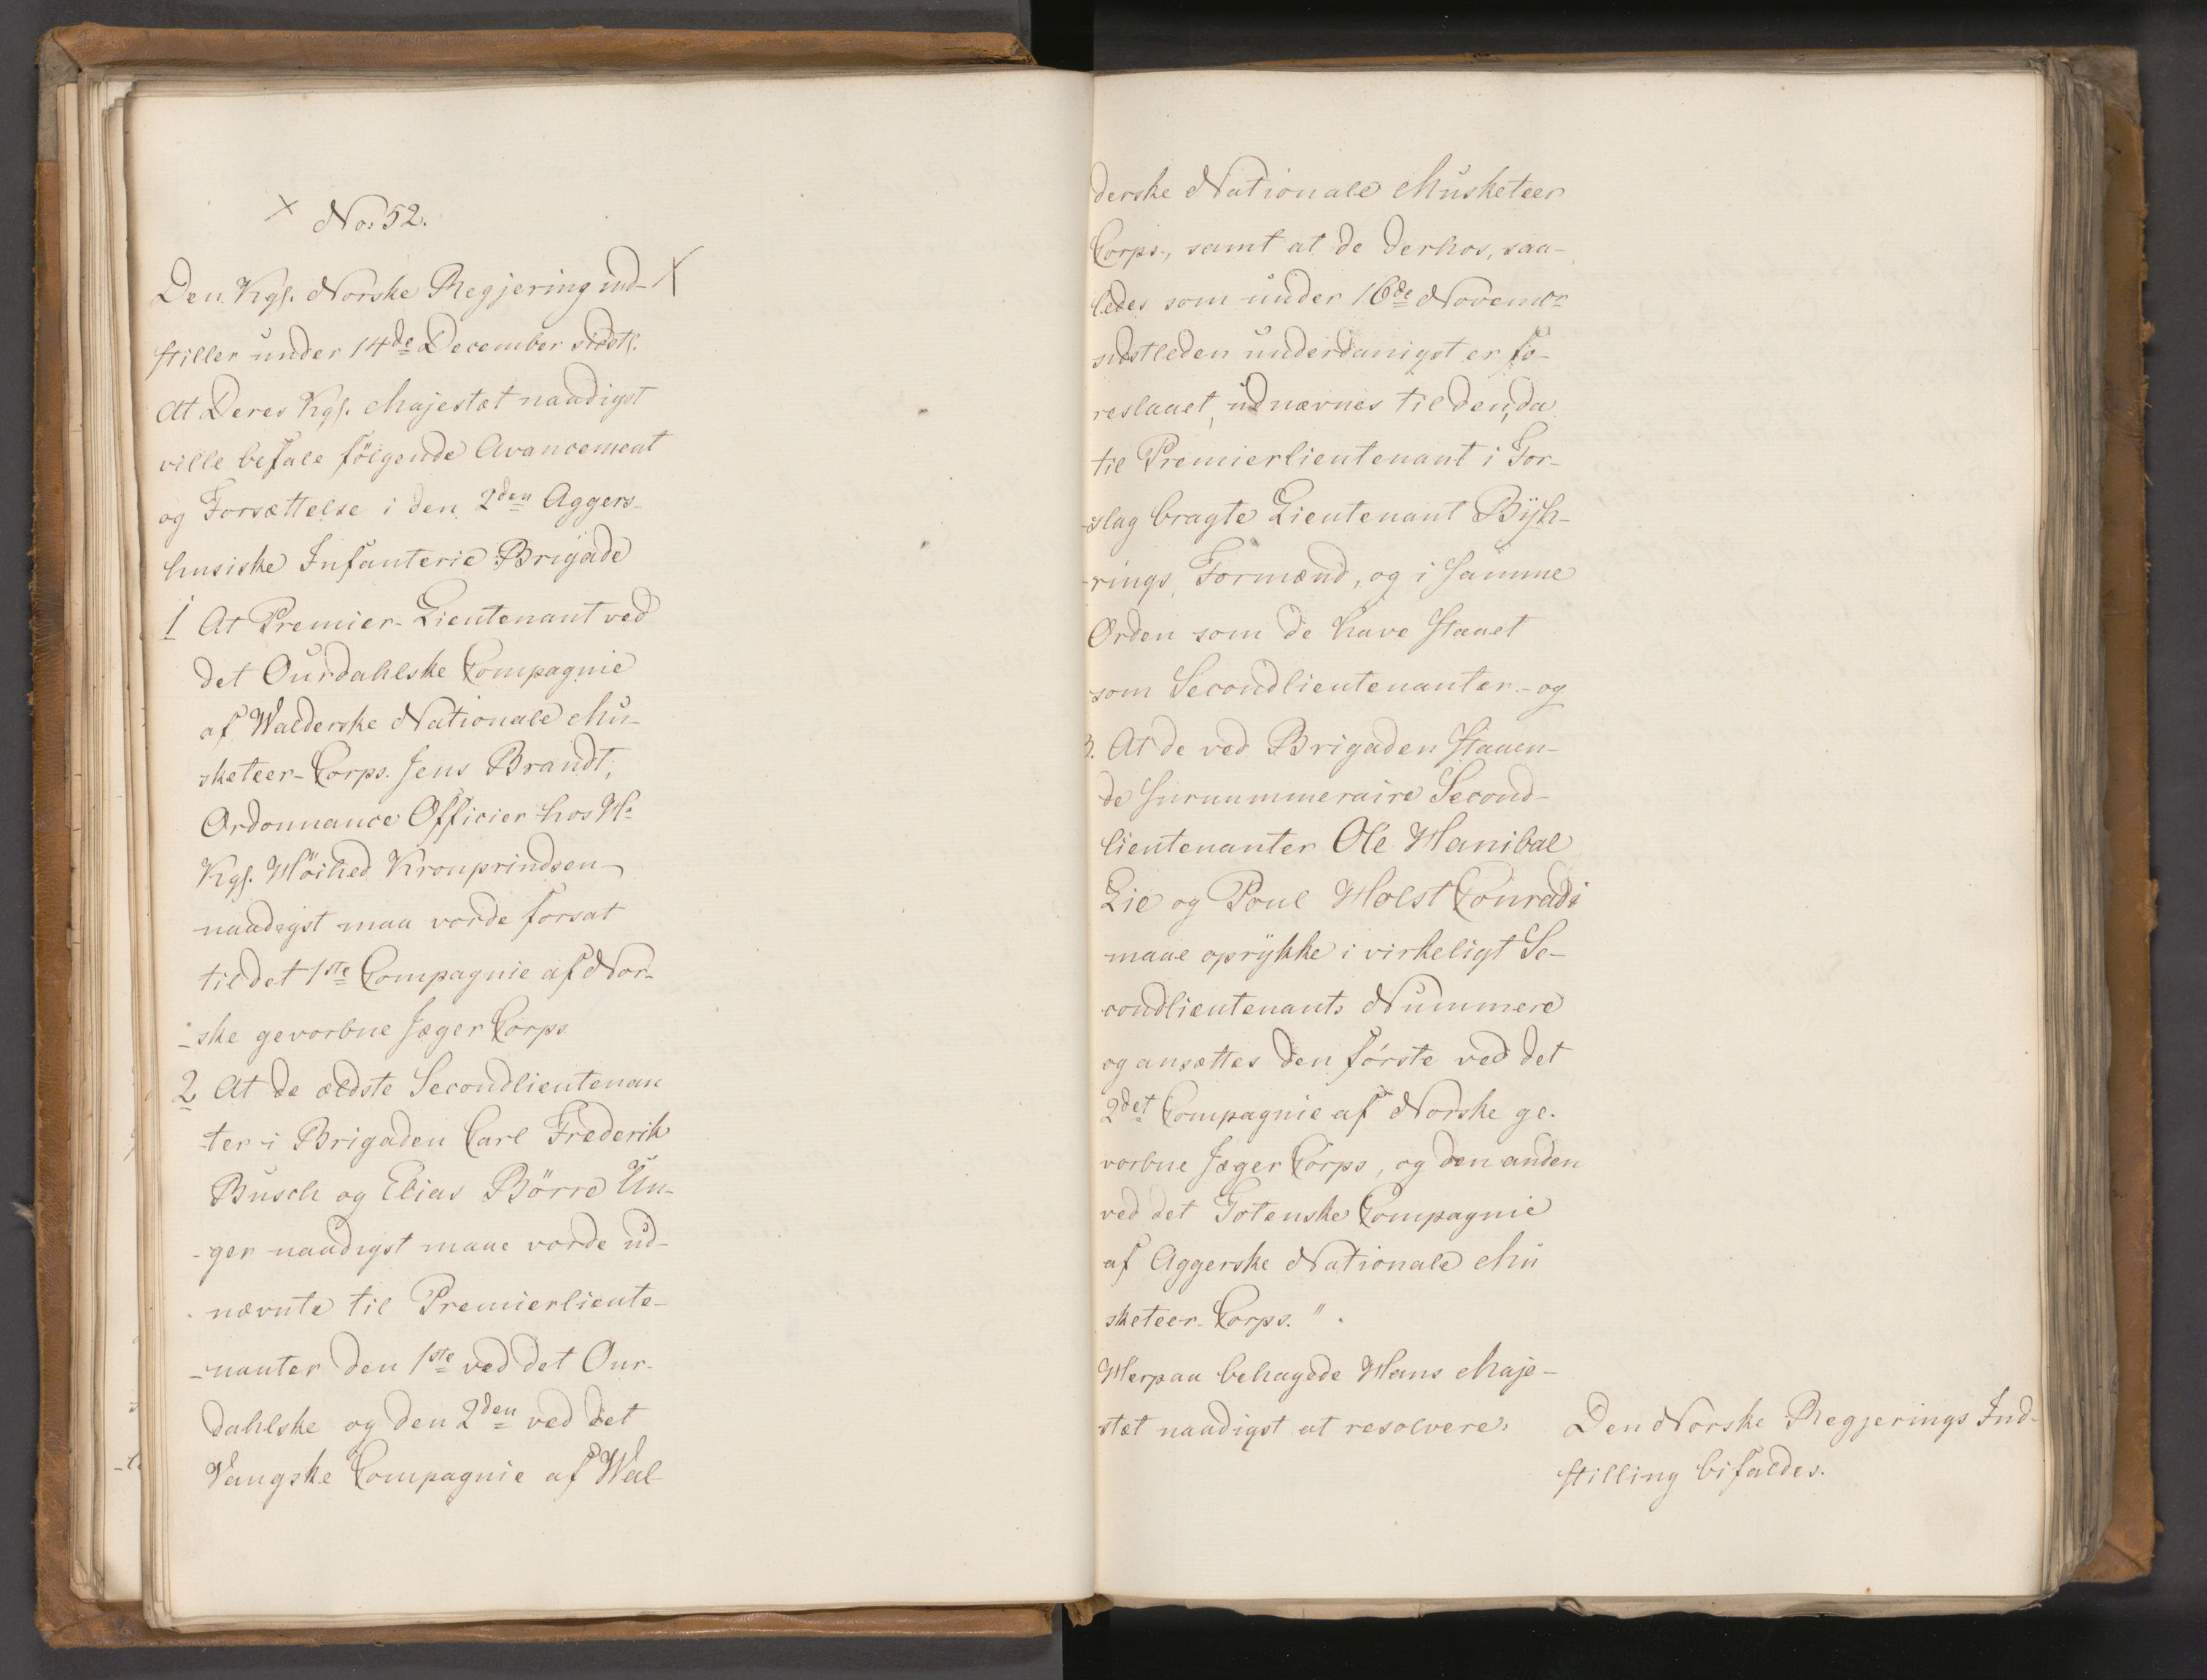 No: 52.
Den Kgl. Norske Regjering ind-
stiller under 14de December sidstl.
At Deres Kgl. Majestæt naadigst
ville befale følgende Avancement
og Forsættelse i den 2den Aggers-
husiske Infanterie Brigade
1 At Premier-Lieutenant ved
det Ourdahlske Compagnie
af Walderske Nationale Mu-
sketeer-Corps. Jens Brandt,
Ordonnance Officier hos Hs
Kgl. Höihed Kronprindsen
naadigst maa vorde forsat
til det 1ste Compagnie af Nor-
-ske gevorbne Jæger Corps
2 At de ældste Secondlieutenan
ter i Brigaden Carl Frederik
Busch og Elias Börre Un-
-ger naadigst maae vorde ud-
nævnte til Premierlieute-
-nanter den 1ste ved det Our-
dahlske og den 2den ved det
Vangske Compagnie af Wal-
derske Nationale Musketeer
Corps, samt at de derhos, saa-
ledes som under 16de Novembr
sidstleden underdanigst er fo-
reslaaet, udnævnes til den, da
til Premierlieutenant i For-
-slag bragte Lieutenant Büh-
-rings, Formænd, og i samme
Orden som de have staaet
som Secondlieutenanter.- og
3. At de ved Brigaden staaen-
de surnummeraire Second-
lieutenanter Ole Hanibal
Lie og Poul Holst Conradi
maae oprykke i virkeligt Se-
condlieutenants Nummere
og ansættes den første ved det
2det Compagnie af Norske ge-
vorbne Jæger Corps, og den anden
ved det Totenske Compagnie
af Aggerske Nationale Mu
sketeer-Corps."
Herpaa behagede Hans Maje-
stæt naadigst at resolvere:
Den Norske Regjerings Ind-
stilling bifaldes.